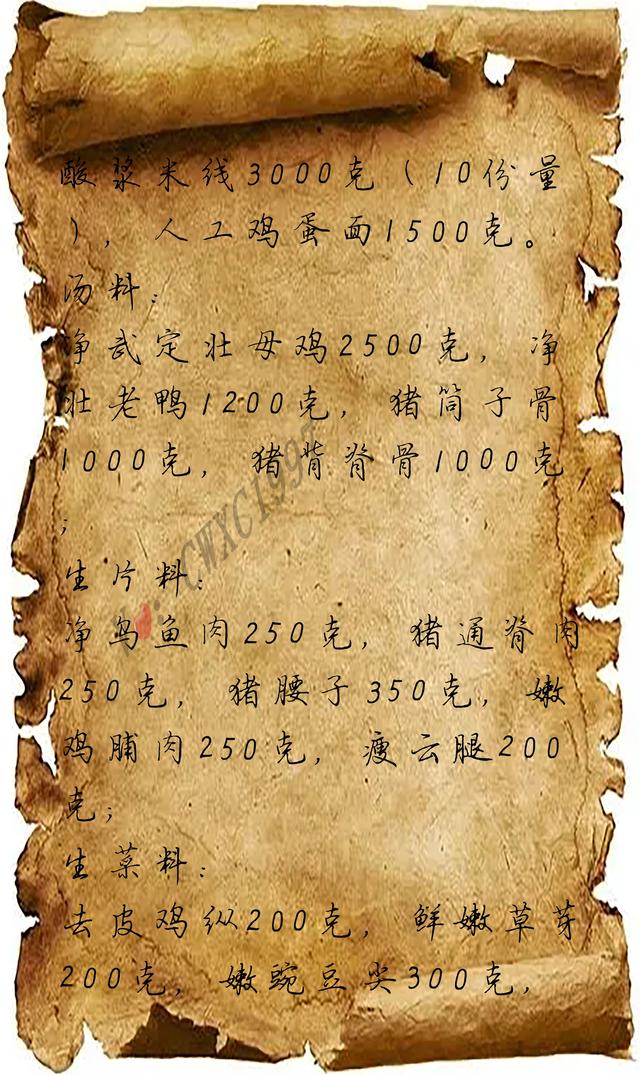 酸浆米线3000克（10份量
），人工鸡蛋面1500克。
汤料：
净武定壮母鸡2500克，净
壮老鸭1200克，猪筒子骨
1000克，猪背脊骨1000克
；
生片料：
净乌鱼肉250克，猪通脊肉
250克，猪腰子350克，嫩
鸡脯肉250克，瘦云腿200
克；
生菜料：
去皮鸡纵200克，鲜嫩草芽
200克，嫩豌豆尖300克，